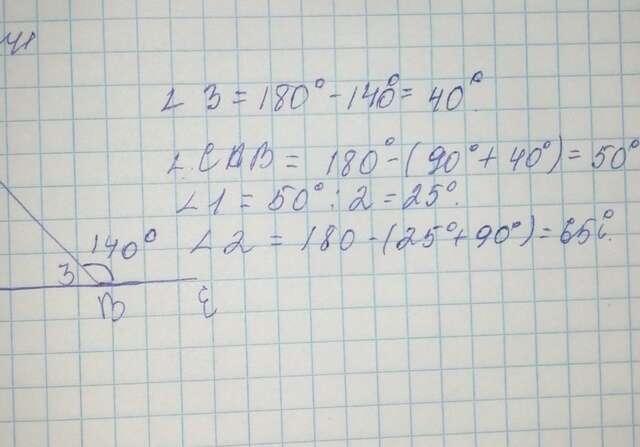 ∠ 3 = 180° - 140° = 40°.
∠ CAB = 180° - (90° + 40°) = 50°
∠ 1 = 50° : 2 = 25°.
140°
∠ 2 = 180 - (25° + 90°) = 65°.
3
B
E